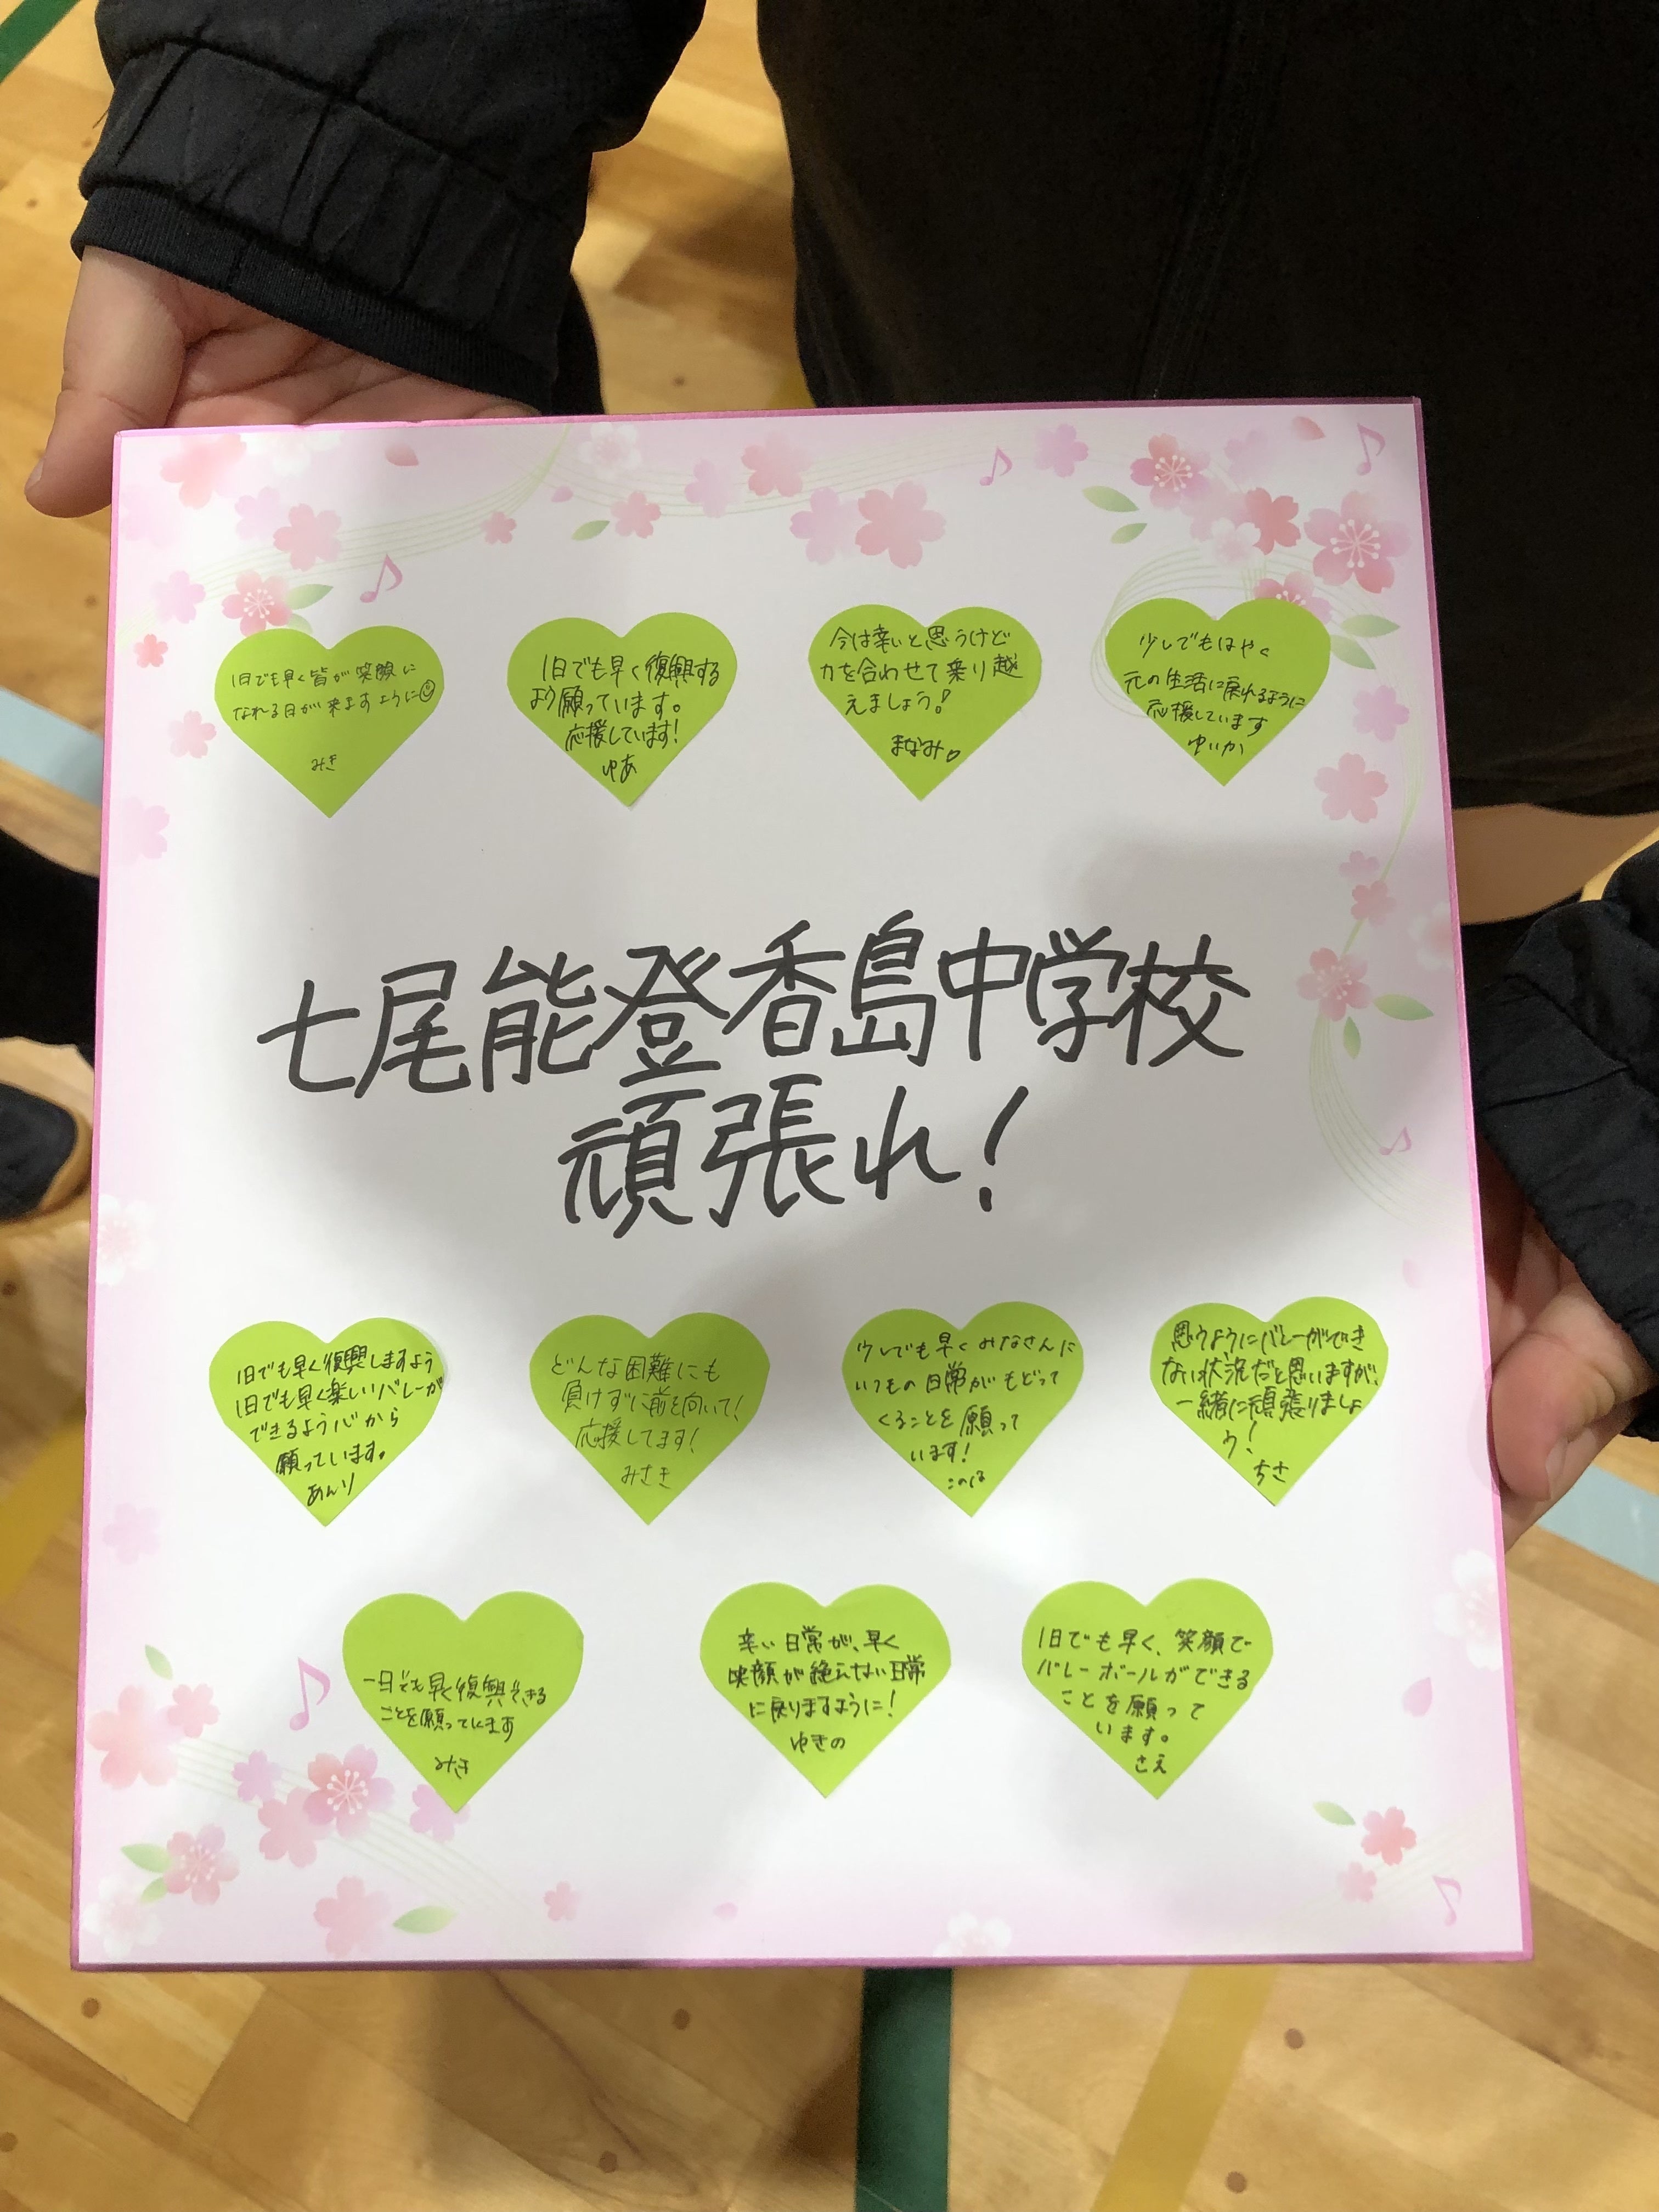 1日でも早く皆が笑顔に
なれる日が来ますように
みき
1日でも早く復興する
よう願っています。
応援しています!
ゆあ
今は辛いと思うけど
力を合わせて乗り越
えましょう!
まなみ♡
少しでもはやく
元の生活に戻れるように
応援しています
ゆいか
七尾能登香島中学校
頑張れ!
1日でも早く復興しますよう
1日でも早く楽しいバレーが
できるよう心から
願っています。
あんり
どんな困難にも
負けずに前を向いて!
応援してます!
みさき
少しでも早くみなさんに
いつもの日常がもどって
くることを願って
います!
このは
思うようにバレーができ
ない状況だと思いますが、
一緒に頑張りましょ
う!
ちさ
一日でも早く復興できる
ことを願っています
みさき
辛い日常が、早く
笑顔が絶えない日常
に戻りますように!
ゆきの
1日でも早く、笑顔で
バレーボールができる
ことを願って
います。
さえ